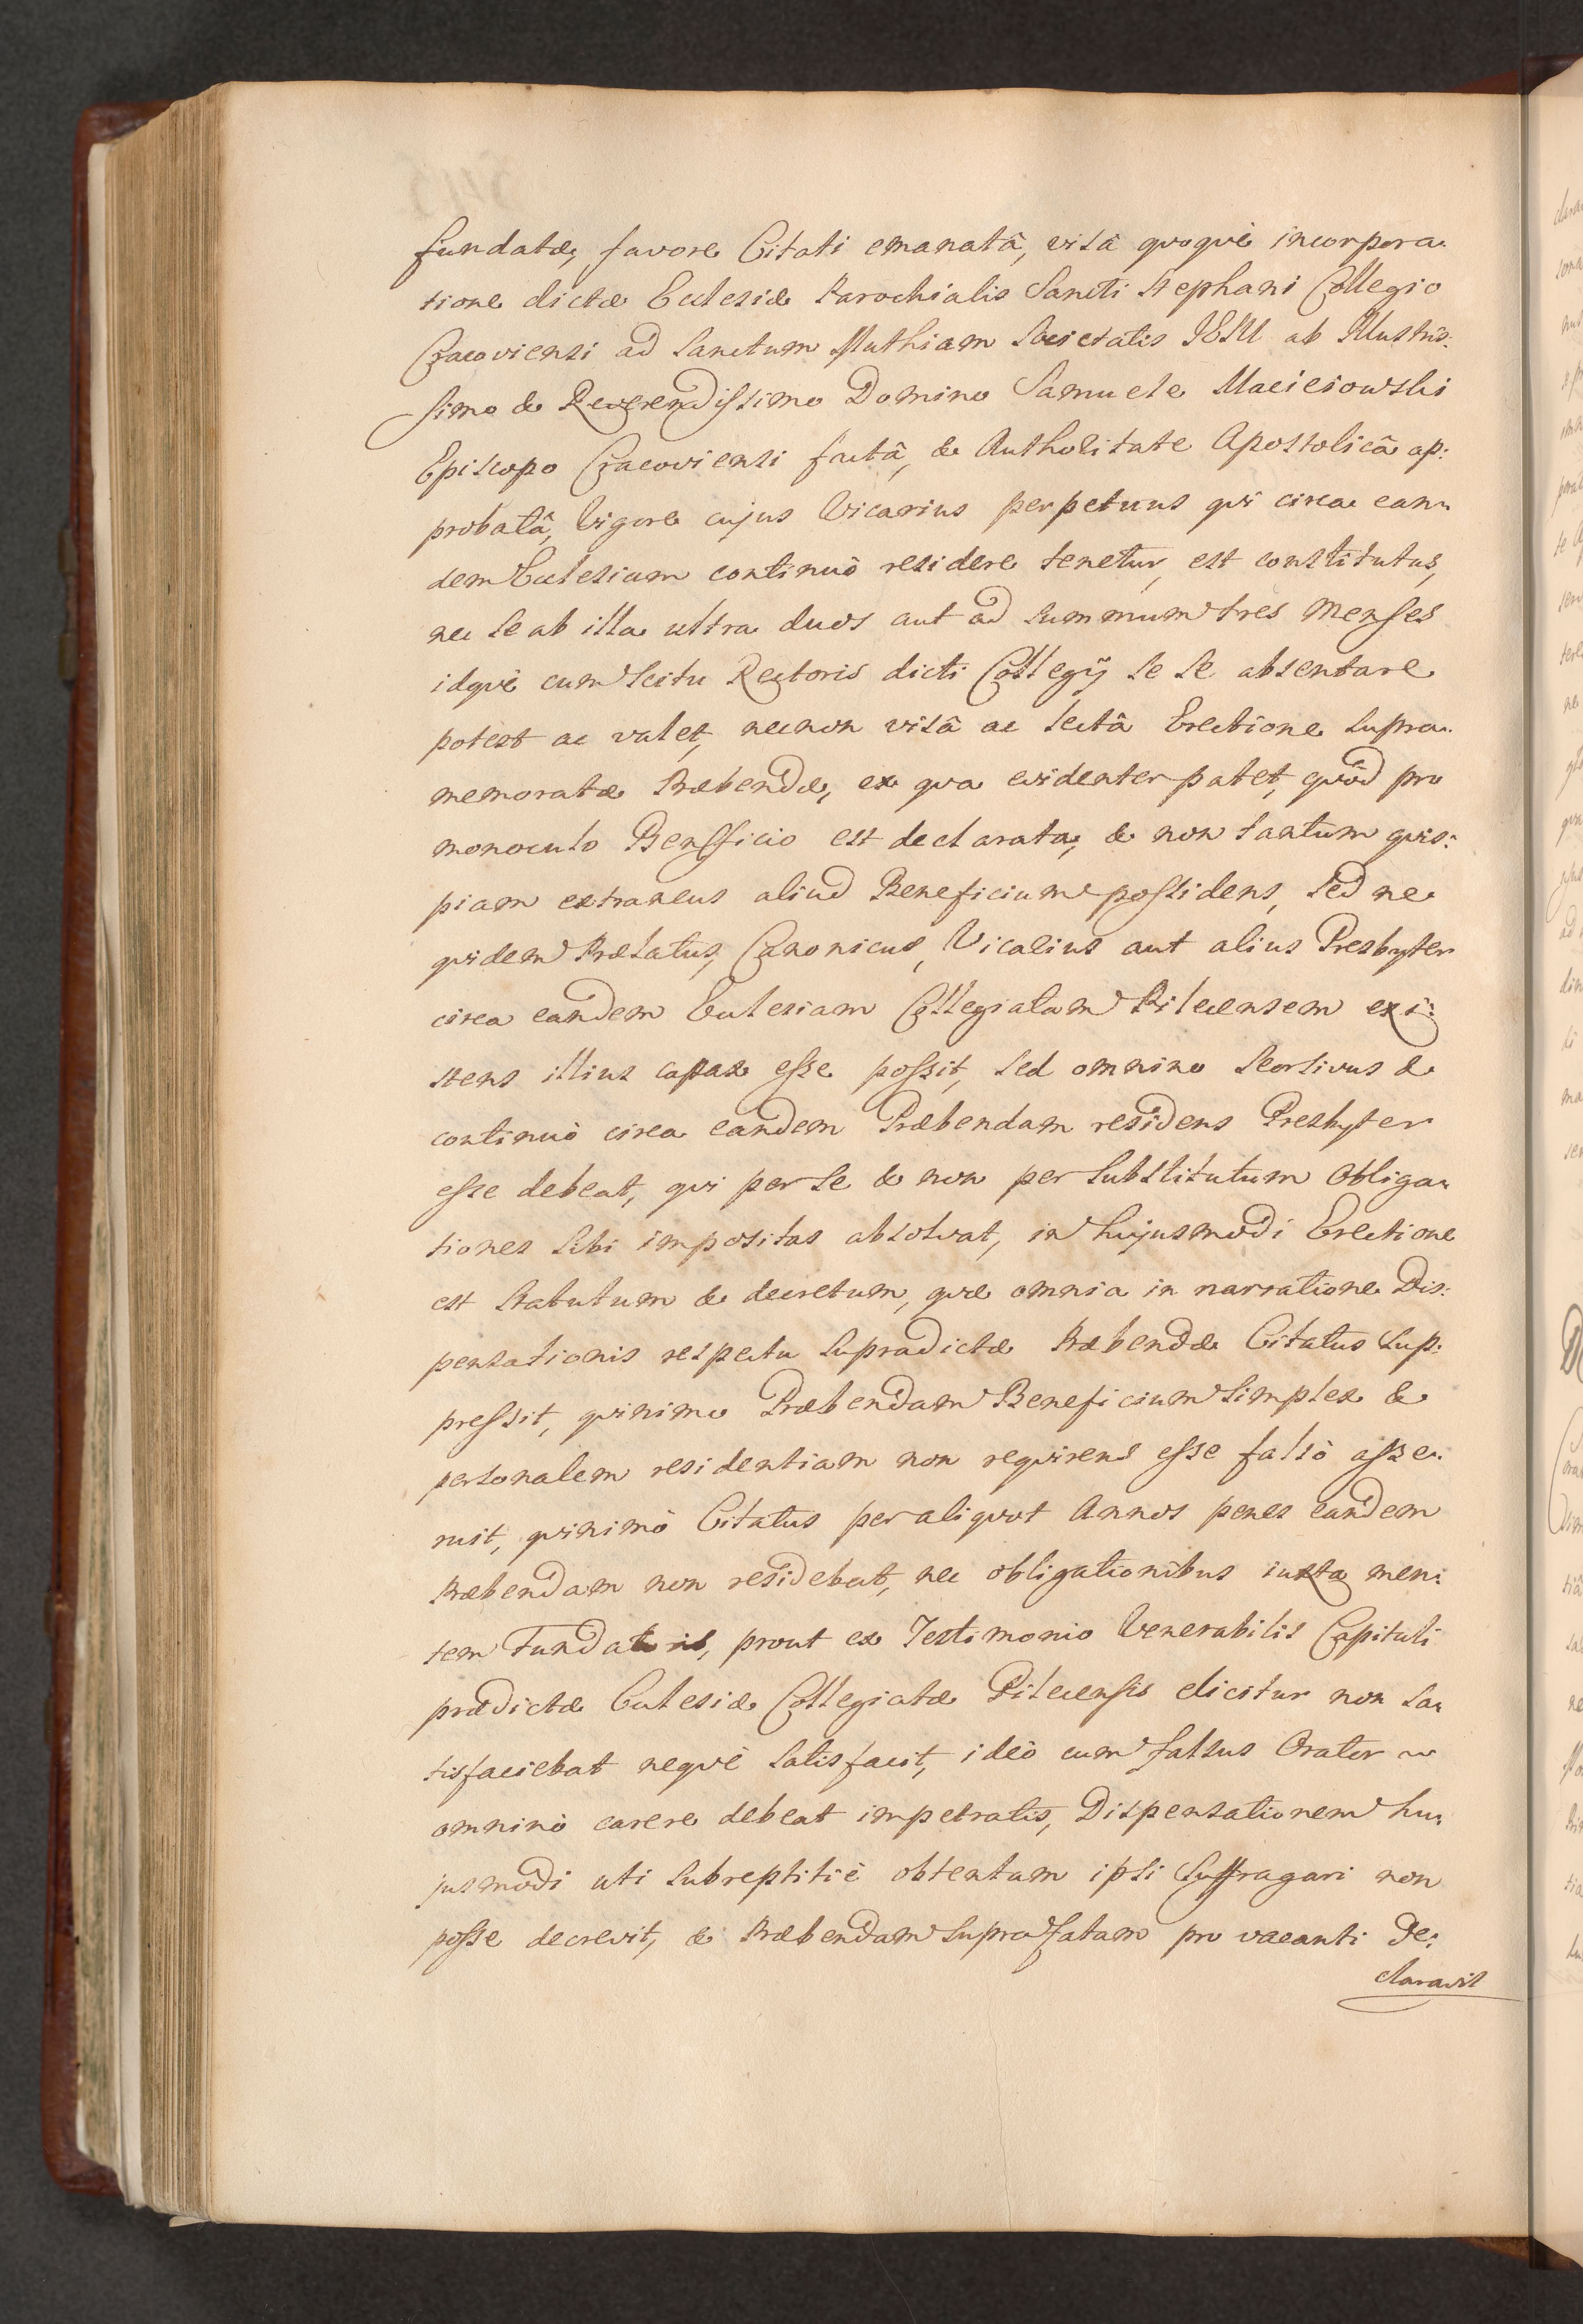 fundatæ, favore Citati emanatâ, visâ quoquè incorpora„
tione dictæ Ecclesiæ Parochialis Sancti Stephani Collegio
Cracoviensi ad Sanctum Mathiam Societatis JESU ab Illustris:
simo & Reverendissimo Domino Samuele Maciejowski
Episcopo Cracoviensi factâ, & Authoritate Apostolicâ ap:
probatâ, vigore cujus Vicarius perpetuus qui circa ean„
dem Ecclesiam continuò residere tenetur, est constitutus,
nec se ab illa ultra duos aut ad summum tres Menses
idquè cum scitu Rectoris dicti Collegij se se absentare
potest ac valet, necnon visâ ac lectâ Erectione supra„
memoratæ Præbendæ, ex qva evidenter patet, quòd pro
monoculo Benefficio est declarata, & non tantum quis:
piam extraneus aliud Beneficium possidens, sed ne
quidem Prælatus, Canonicus, Vicarius aut alius Presbyter
circa eandem Ecclesiam Collegiatam Pilecensem exi:
stens illius capax esse possit, sed omnino seorsivus &
continuò circa eandem Præbendam residens Presbyter
esse debeat, qui per se & non per substitutum obliga„
tiones sibi impositas absolvat, in hujusmodi Erectione
est statutum & decretum, quæ omnia in narratione Dis:
pensationis respectu supradictæ Præbendæ Citatus sup:
pressit, quinimo Præbendam Beneficium simplex &
personalem residentiam non requirens esse falsò asse„
ruit, quinimò Citatus per aliquot Annos penes eandem
Præbendam non residebat, nec obligationibus iuxta men:
tem Fundatoris, prout ex Testimonio Venerabilis Capituli
prædictæ Ecclesiæ Collegiatæ Pilecensis elicitur non sa„
tisfaciebat nequè satisfacit, ideò cum falsus Orator
omninò carere debeat impetratis, Dispensationem hu„
jusmodi uti subreptitiè obtentam ipsi suffragari non
posse decrevit, & Præbendam suprafatam pro vacanti de:
claravit